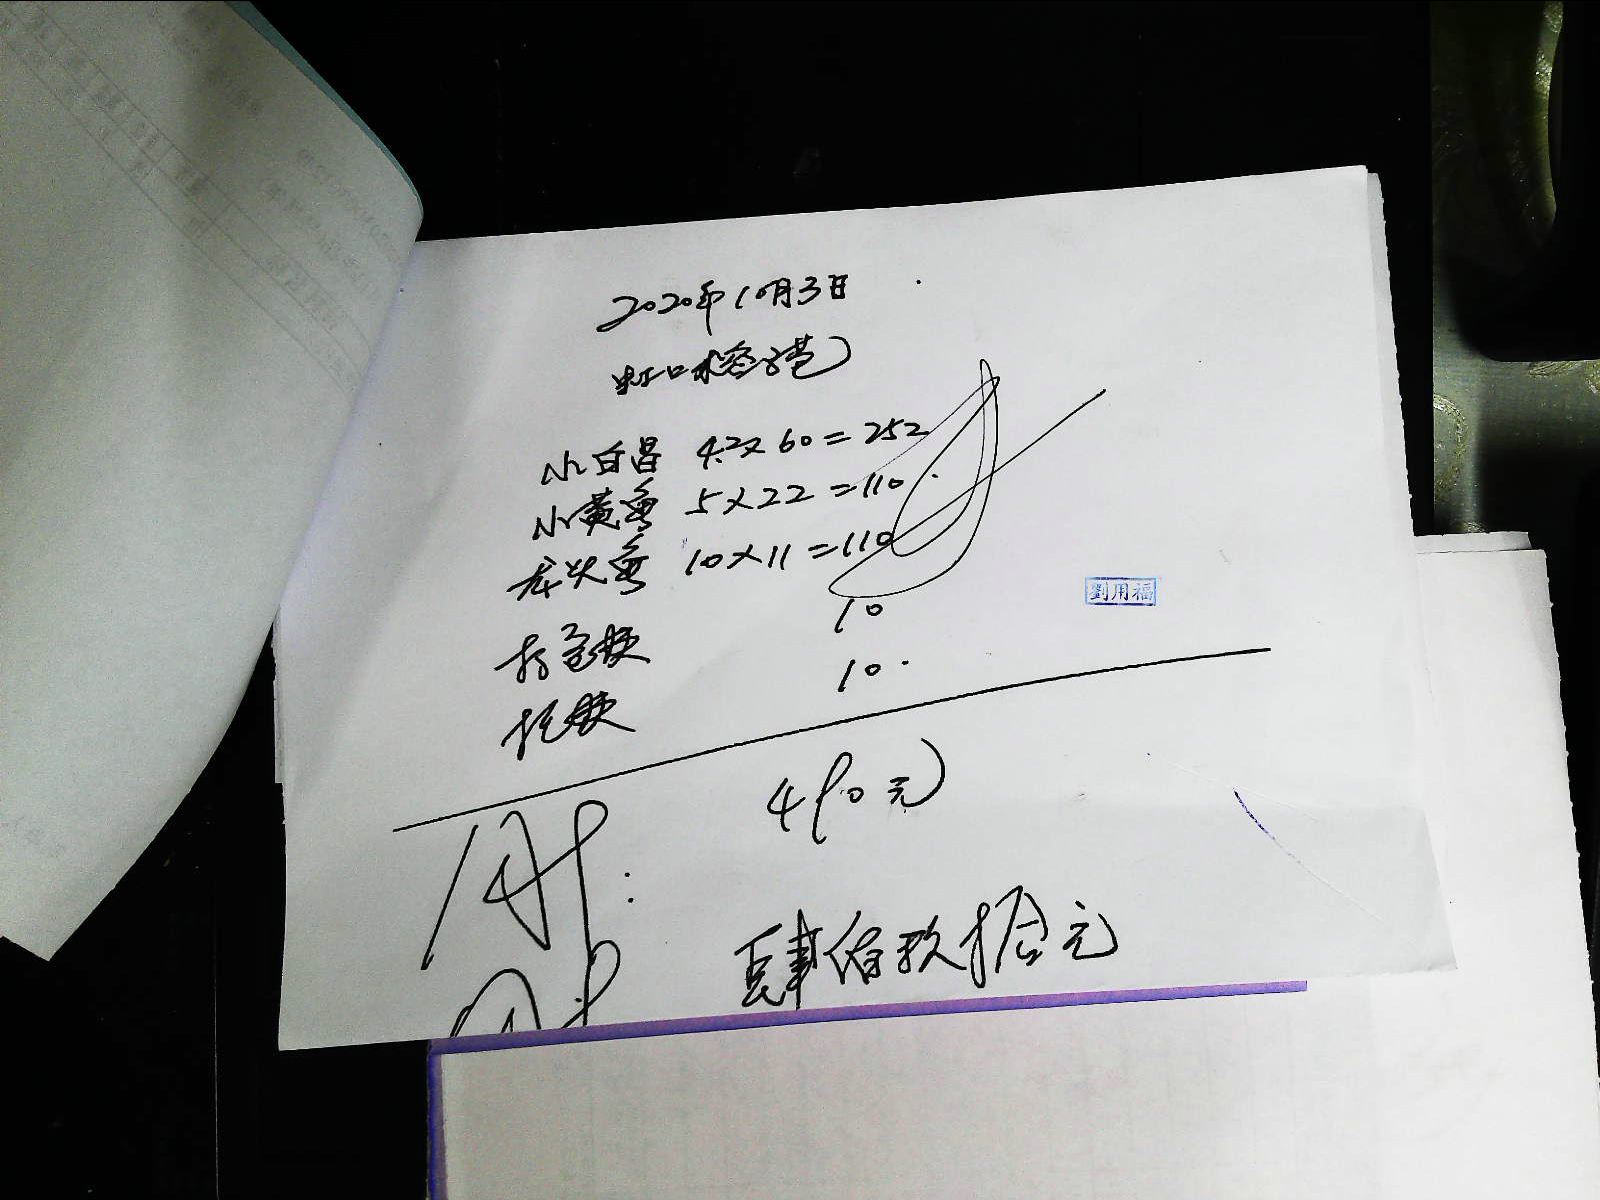 2020年10月3日
虹口水香港
小白昌 4.2x60=252
小黄鱼 5x22=110
龙头鱼 10x11=110
打包费 10
托费 10
490元
肆佰玖拾元
劉用福